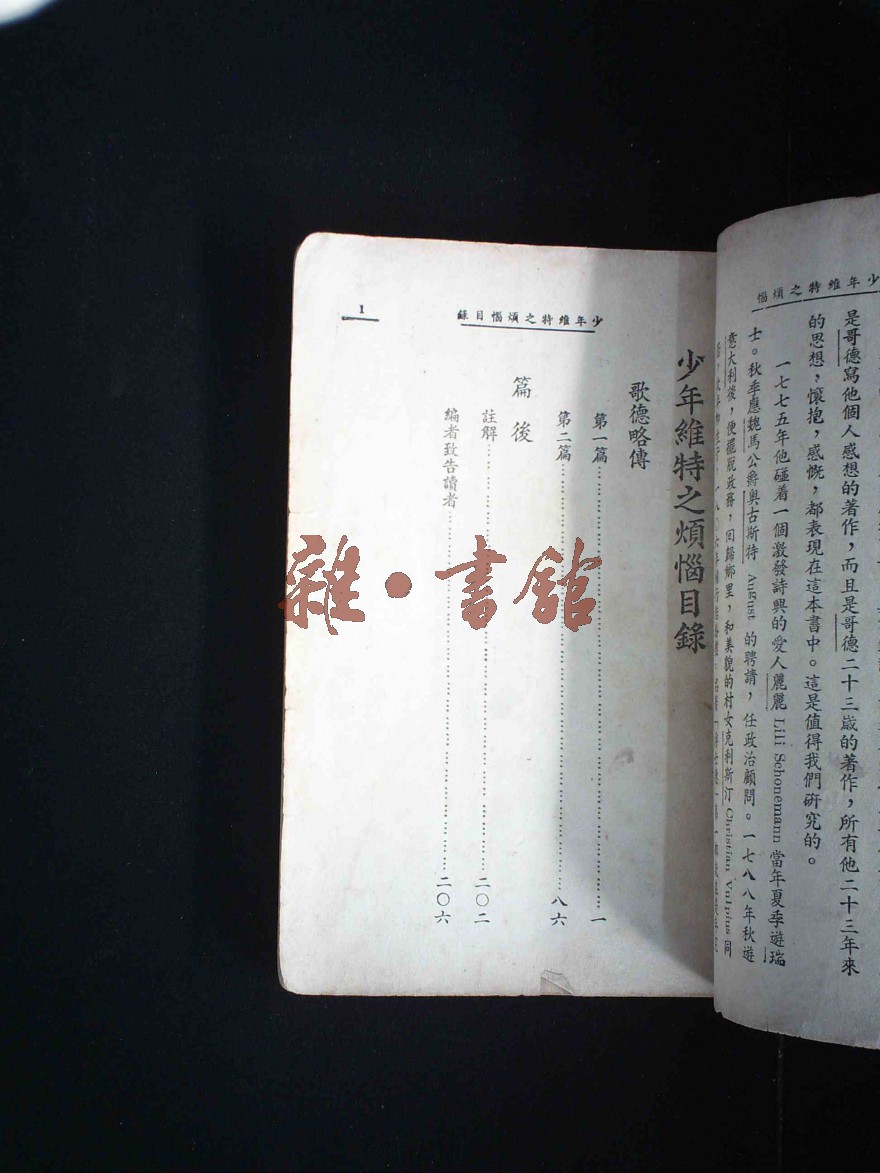 少年維特之煩惱
是哥德寫他個人感想的著作，而且是哥德二十三歲的著作，所有他二十三年來
的思想，懷抱，感慨，都表現在這本書中。這是值得我們研究的。
一七七五年他碰着一個激發詩興的愛人麗麗 Lili Schonemann 當年夏季遊瑞
士。秋季應魏馬公爵奧古斯特 August 的聘請，任政治顧問。一七八八年秋遊
意大利後，便擺脫政務，回歸鄉里，和美貌的村女克利斯汀 Christian Vulpius 同
少年維特之煩惱目錄
1
少年維特之煩惱目錄
歌德略傳
第一篇……一
第二篇……八六
篇後
註解……二〇二
編者致告讀者……二〇六
雜·書館